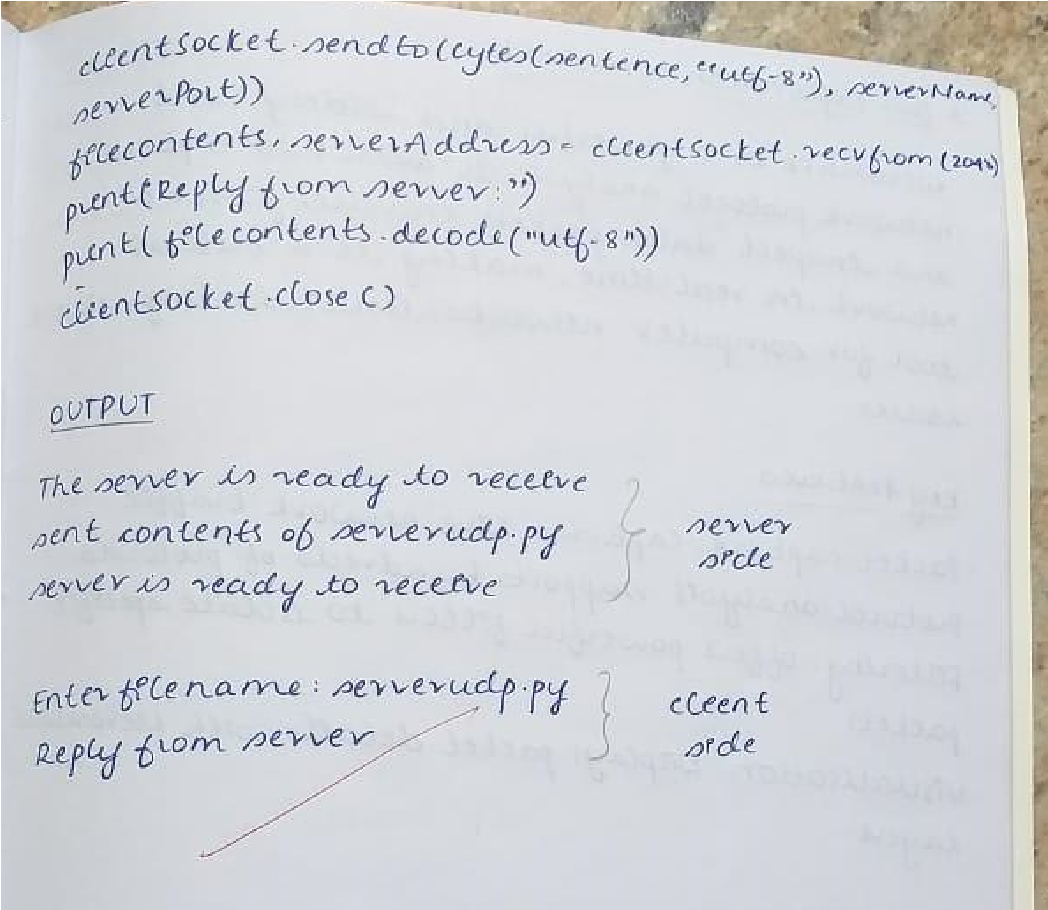 clientSocket.sendto(bytes(sentence, "utf-8"), serverName,
serverPort))
filecontents, serverAddress = clientsocket.recvfrom(2048)
print(Reply from server:")
print(filecontents.decode("utf-8"))
clientsocket.close()
OUTPUT
The server is ready to receive
sent contents of serverudp.py
server is ready to receive
server
side
Enter filename: serverudp.py
Reply from server
client
side